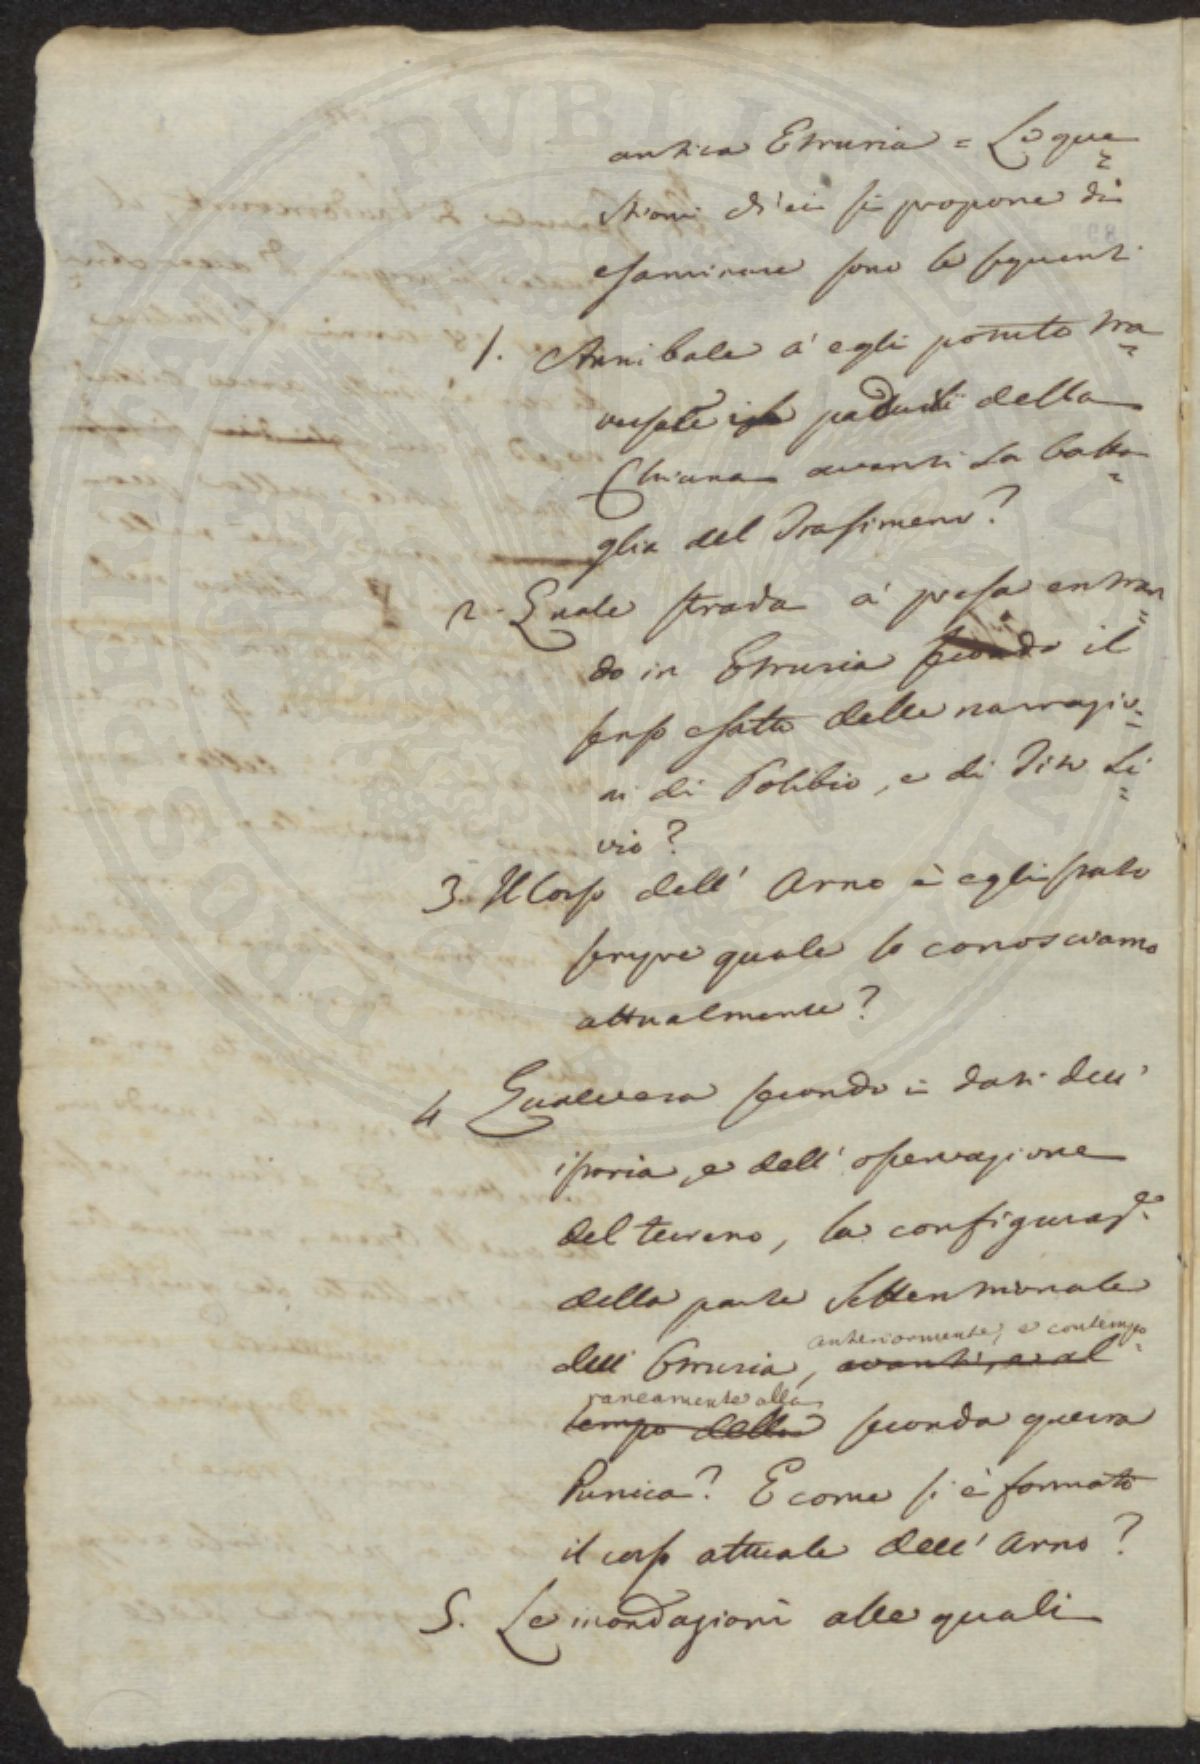 antica Etruria = Le que=
stioni ch'ei si propone di
esaminare sono le seguenti
1. Annibale à egli potuto tra=
versate le paduli della
Chiana avanti la batta=
glia del Trasimeno?
2. Quale strada à presa entran=
do in Etruria secondo il
senso esatto delle narrazio=
ni di Polibio, e di Tito Li=
vio?
3. Il Corso dell' Arno è egli stato
sempre quale lo conosciamo
attualmente?
4 Qual'era secondo i dati dell'
istoria, e dell' osservazione
del terreno, la configuraz.e
della parte Settentrionale
dell' Etruria, avanti, e al
anteriormente, e contempo=
raneamente alla
tempo della seconda guerra
Punica? E come si è formato
il corso attuale dell' Arno?
5. Le inondazioni alle quali